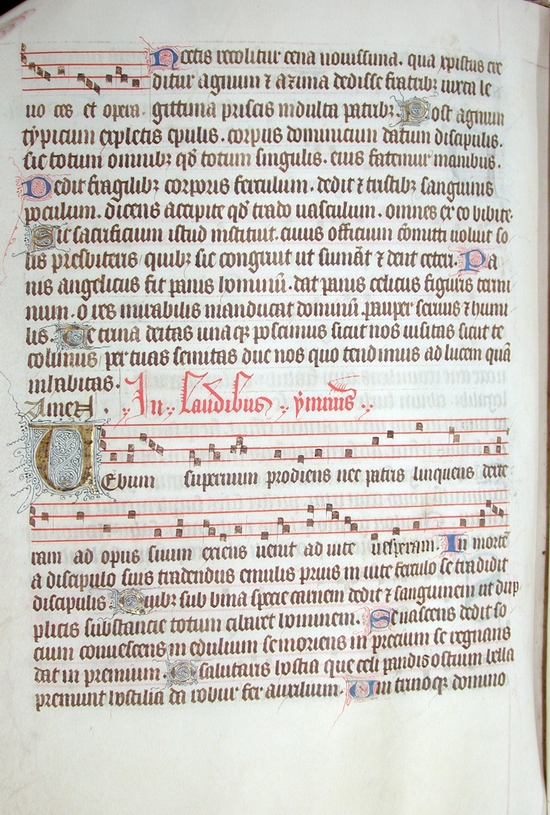 Noctis recolitur cena novissima. qua xpistus cre
ditur agnum ⁊ azima dedisse fratribꝫ iuxta le
uo ces et opera. gittima priscis indulta patribꝫ. Post agnum
typicum expletis epulis. corpus dominicum datum discipulis.
sic totum omnibꝫ qđ totum singulis. eius fatemur manibus.
Dedit fragilibꝫ corporis ferculum. dedit ⁊ tristibꝫ sanguinis
poculum. dicens accipite qđ trado vasculum. omnes ex eo bibite.
Sic sacrificium istud instituit. cuius officium cōmitti voluit so
lis presbiteris quibꝫ sic congruit ut sumāt ⁊ dent ceteris. Pa
nis angelicus fit panis hominū. dat panis celicus figuris termi
num. O res mirabilis manducat dominū. pauper servus ⁊ humi
lis. Te trina deitas unaqꝫ poscimus sicut nos visitas sicut te
colimus per tuas semitas duc nos quo tendimus ad lucem quā
inhabitas.
Amen. In Laudibus ymnus
Verbum supernum prodiens nec patris linquens dexte
ram ad opus suum exiens venit ad vite vesperam. In mortē
a discipulo suis tradendus emulis prius in vite ferculo se tradidit
discipulis. Quibꝫ sub bina specie carnem dedit ⁊ sanguinem ut dup
plicis substancie totum cibaret hominem. Se nascens dedit so
cium convescens in edulium se moriens in precium se regnans
dat in premium. O salutaris hostia que celi pandis ostium bella
premunt hostilia da robur fer auxilium. Uni trinoqꝫ domino